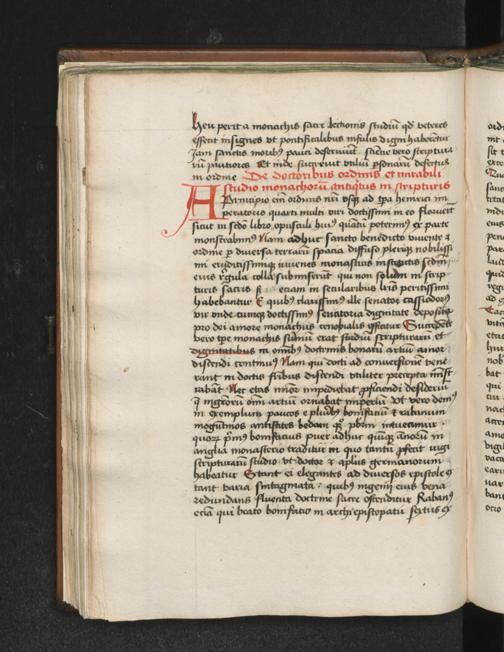 Heu perit a monachis sacre lectionis studiū qd veteres
essent insignes vt pontificalibus infulis digni haberent
Jam sanctis morib9 pauci deserviūt sacre vero scripture
Et inde surrexit vtiliū psonarū defectus
in ordine De doctoribus ordinis et mirabili
studio monachorū antiquis in scripturis
A Principio em̄ ordinis nr̄i vsqȝ ad tpa henrici im
peratoris quarti multi viri doctissimi in eo floruerūt
sicut in scdo libro opusculi hui9 quātū poterim9 ex parte
monstrabim9 Nam adhuc sancto benedicto vivente et
ordine p diversa terrarū spacia diffuso pleriqȝ nobilissi
mi eruditissimiqȝ iuvenes monasticis institutis scdm
eius regula colla submiserūt qui non solum in scrip
turis sacris etiam in secularibus lr̄is peritissimi
habebantur E quib9 clarissim9 ille senator cassiodor9
vir vndecumqȝ doctissim9 senatoria dignitate deposita
pro dei amore monachus cenobialis effectus Succedēte
vero tpe monachis sūmū erat studiū scripturarū et
dignitatibus in omib9 doctrinis bonarū artiū amor
discendi continu9 Nam qui docti ad conversionē vene
rant indoctis fribus discendi vtiliter precepta mīst
rabāt Nec etas minor impediebat pficiendi desideriū
omīm artiū ornabat imperiū Vt vero dem9
in exemplum paucos e plurib9 bonifaciū et rabanum
mogūtinos antistites bedam qȝ pbrm intueamur
quorȝ prim9 bonifacius puer adhuc quīqȝ annorū in
anglia monasterio traditur in quo tantū pfecit iugi
scripturarū studio vt doctor et aplus germanorum
habeatur Extant ei elegantes ad diversos epistole ex
tant varia sintagmata quib9 ingenij eius vena
redundans fluenta doctrine sacre ostenditur Raban9
eciā qui beato bonifacio in archiepiscopatū